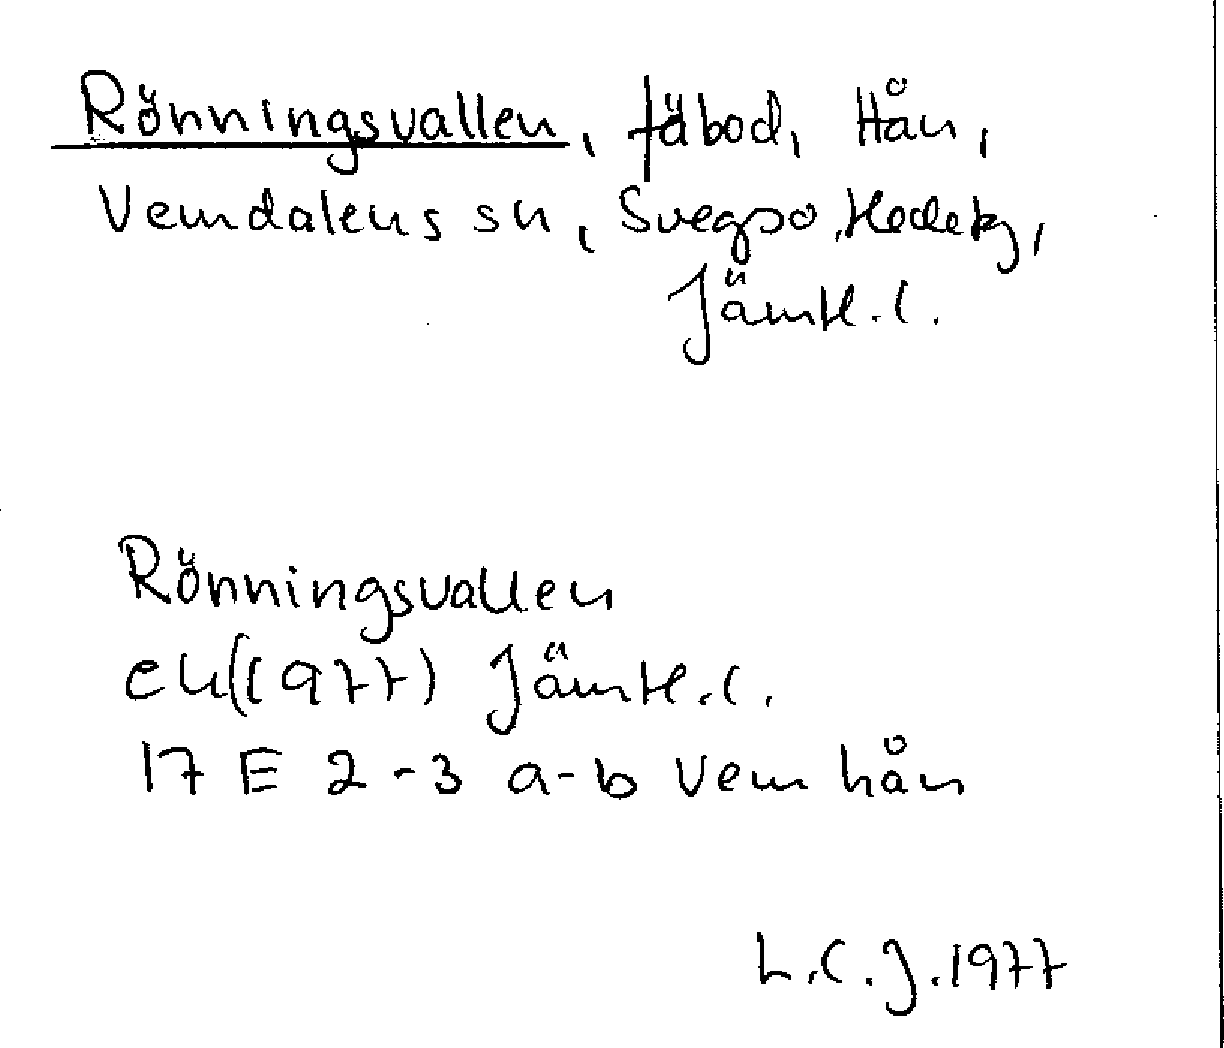 Rönningsvallen, fäbod, Hån,
Vemdalens sn, Svegs
Jämtl.l.
Rönningsvallen
ek (1977) Jämtl.l.
17 E 2-3 a-b Vemhån
L.C.J. 1977